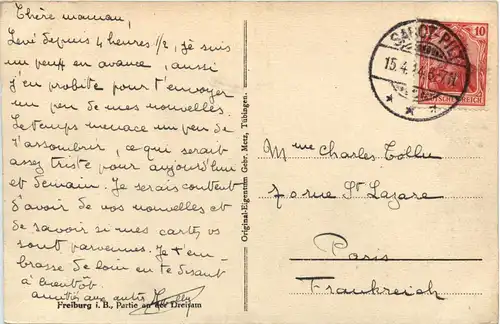 Chère maman,
Levé depuis 4 heures 1/2, je suis
un peu en avance, aussi
j'en profite pour t'envoyer
un peu de mes nouvelles.
Le temps menace un peu de
s'assombrir, ce qui serait
assez triste pour aujourd'hui
et demain. Je serais content
d'avoir de vos nouvelles et
de savoir si mes cartes vs
sont parvenues. Je t'em-
brasse de loin en te disant
à bientôt.
amitiés aux autres
Freiburg i. B., Partie an der Dreisam
Original-Eigentum Gebr. Metz, Tübingen.
15.4.
10
DEUTSCHES REICH
Mme Charles
70 rue St Lazare
Paris
Frankreich